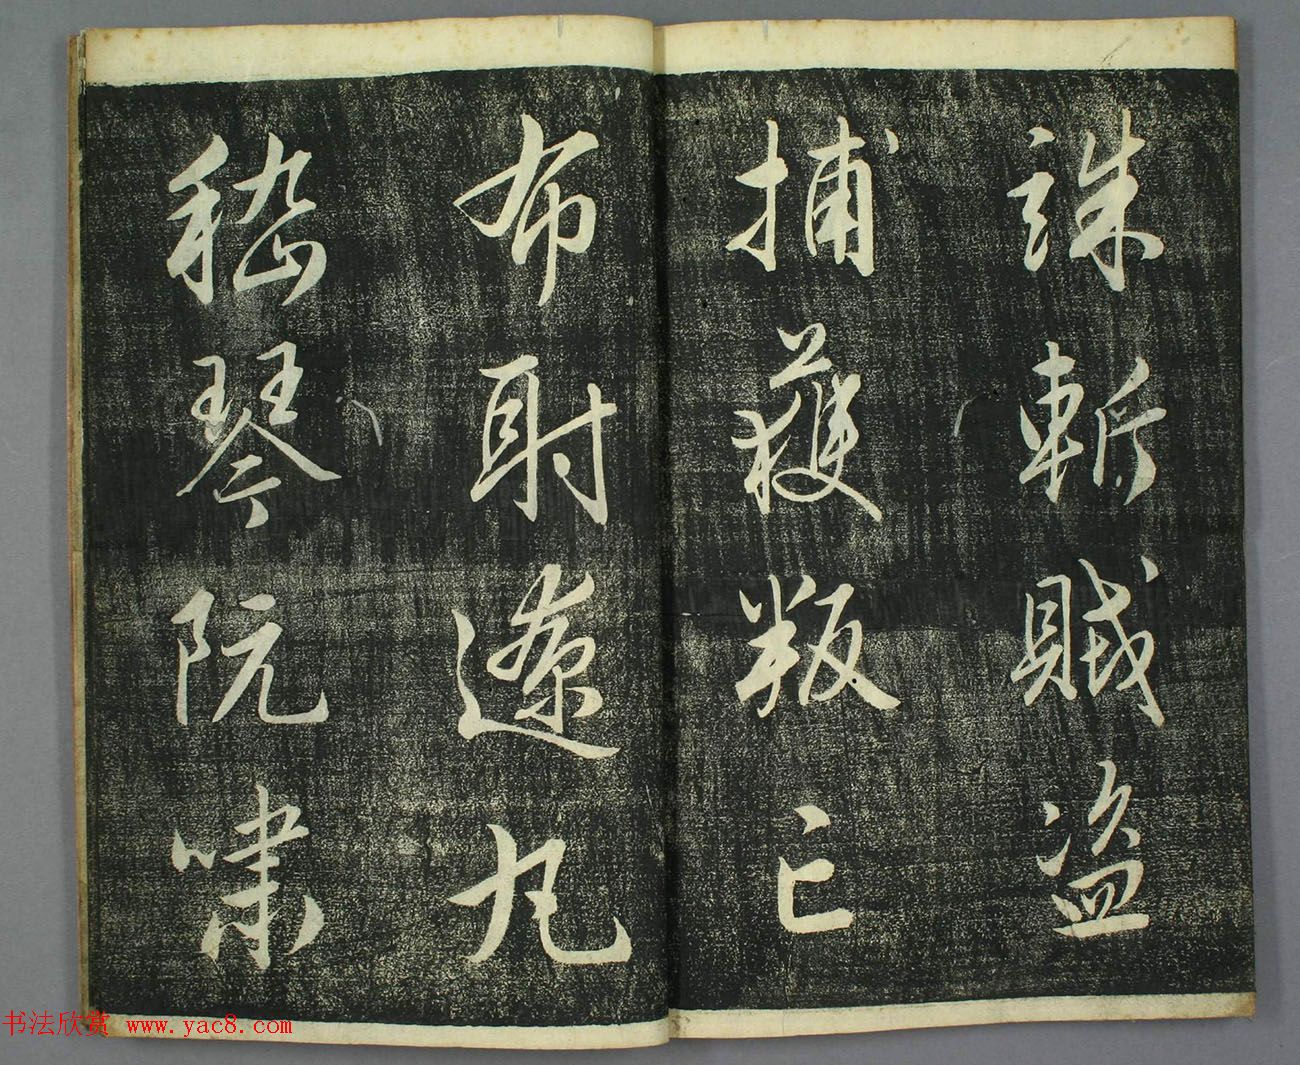 誅斬賊盜
捕獲叛亡
布射遼丸
嵇琴阮嘯
书法欣赏 www.yac8.com